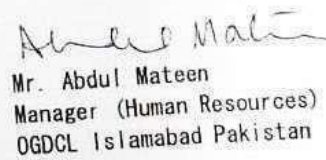 Abdul Mateen
Mr. Abdul Mateen
Manager (Human Resources)
OGDCL Islamabad Pakistan